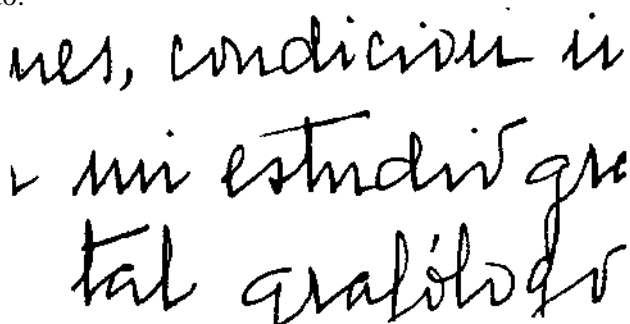 nes, condicion in
mi estudio gra
tal grafólogo